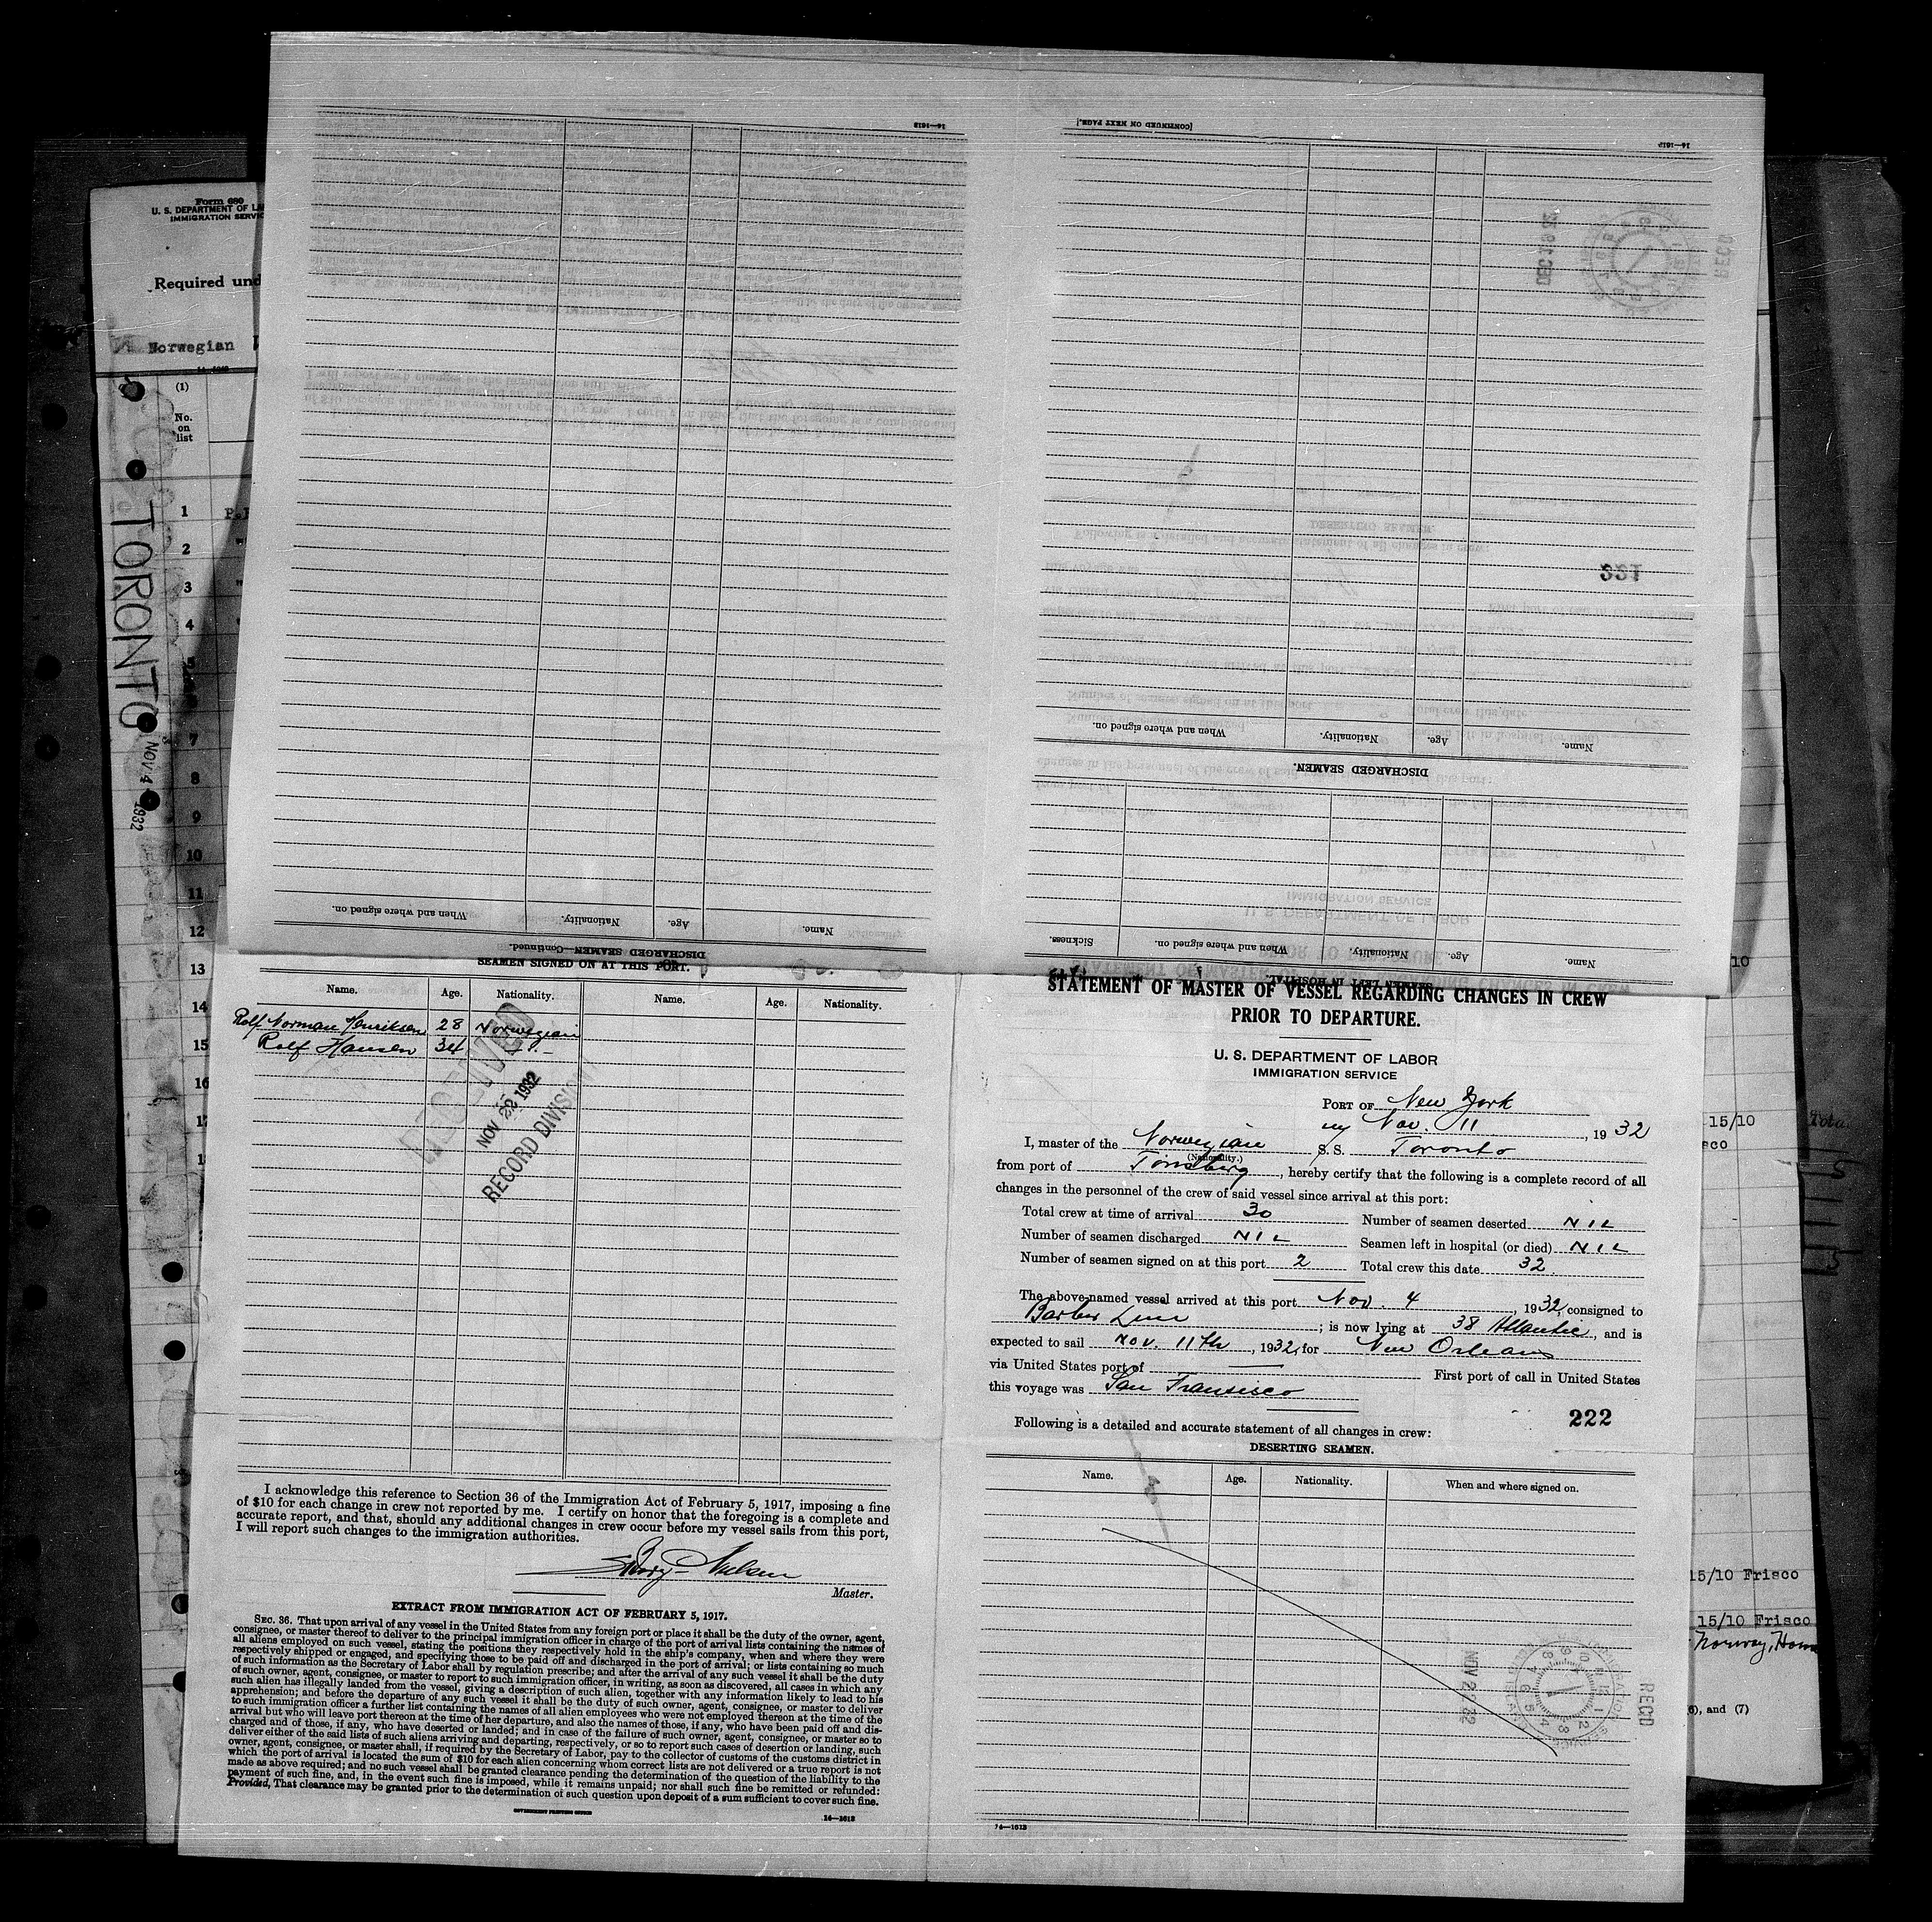 Form 680
U. S. DEPARTMENT OF LA
IMMIGRATION SERVIC
Required und
Norwegian
(1)
No.
on
list
1
2
3
4
5
7
8
9
10
11
12
13
14
15
16
TORONTO
NOV 4 1932
16—1613
[CONTINUED ON NEXT PAGE.]
16—1613
DEC 3 32
REC'D
221
When and where signed on. Nationality. Age. Name.
DISCHARGED SEAMEN.
When and where signed on. Nationality. Age. Name.
DISCHARGED SEAMEN—Continued.
Sickness. When and where signed on. Nationality. Age. Name.
SEAMEN LEFT IN HOSPITAL.
SEAMEN SIGNED ON AT THIS PORT.
Name. Age. Nationality. Name. Age. Nationality.
Rolf Norman Henriksen 28 Norwegian
Rolf Hansen 34 —"—
RECEIVED
NOV 22 1932
RECORD DIVISION
I acknowledge this reference to Section 36 of the Immigration Act of February 5, 1917, imposing a fine
of $10 for each change in crew not reported by me. I certify on honor that the foregoing is a complete and
accurate report, and that, should any additional changes in crew occur before my vessel sails from this port,
I will report such changes to the immigration authorities.
Nielsen
Master.
EXTRACT FROM IMMIGRATION ACT OF FEBRUARY 5, 1917.
SEC. 36. That upon arrival of any vessel in the United States from any foreign port or place it shall be the duty of the owner, agent,
consignee, or master thereof to deliver to the principal immigration officer in charge of the port of arrival lists containing the names of
all aliens employed on such vessel, stating the positions they respectively hold in the ship's company, when and where they were
respectively shipped or engaged, and specifying those to be paid off and discharged in the port of arrival; or lists containing so much
of such information as the Secretary of Labor shall by regulation prescribe; and after the arrival of any such vessel it shall be the duty
of such owner, agent, consignee, or master to report to such immigration officer, in writing, as soon as discovered, all cases in which any
such alien has illegally landed from the vessel, giving a description of such alien, together with any information likely to lead to his
apprehension; and before the departure of any such vessel it shall be the duty of such owner, agent, consignee, or master to deliver
to such immigration officer a further list containing the names of all alien employees who were not employed thereon at the time of the
arrival but who will leave port thereon at the time of her departure, and also the names of those, if any, who have been paid off and dis-
charged and of those, if any, who have deserted or landed; and in case of the failure of such owner, agent, consignee, or master so to
deliver either of the said lists of such aliens arriving and departing, respectively, or so to report such cases of desertion or landing, such
owner, agent, consignee, or master shall, if required by the Secretary of Labor, pay to the collector of customs of the customs district in
which the port of arrival is located the sum of $10 for each alien concerning whom correct lists are not delivered or a true report is not
made as above required; and no such vessel shall be granted clearance pending the determination of the question of the liability to the
payment of such fine, and, in the event such fine is imposed, while it remains unpaid; nor shall such fine be remitted or refunded:
Provided, That clearance may be granted prior to the determination of such question upon deposit of a sum sufficient to cover such fine.
GOVERNMENT PRINTING OFFICE
14—1613
STATEMENT OF MASTER OF VESSEL REGARDING CHANGES IN CREW
PRIOR TO DEPARTURE.
U. S. DEPARTMENT OF LABOR
IMMIGRATION SERVICE
PORT OF New York
ny Nov. 11, 1932
I, master of the Norwegian S. S. Toronto
(Nationality.)
from port of Tönsberg, hereby certify that the following is a complete record of all
changes in the personnel of the crew of said vessel since arrival at this port:
Total crew at time of arrival 30 Number of seamen deserted NIL
Number of seamen discharged NIL Seamen left in hospital (or died) NIL
Number of seamen signed on at this port 2 Total crew this date 32.
The above-named vessel arrived at this port Nov. 4, 1932, consigned to
Barber Line; is now lying at 38 Atlantic, and is
expected to sail Nov. 11th, 1932, for New Orleans
via United States port of First port of call in United States
this voyage was San Fransisco
222
Following is a detailed and accurate statement of all changes in crew:
DESERTING SEAMEN.
Name. Age. Nationality. When and where signed on.
NOV 22 32
REC'D
14—1613
10
15/10
sco
Tota
15/10 Frisco
15/10 Frisco
Norway, Hom
6), and (7)